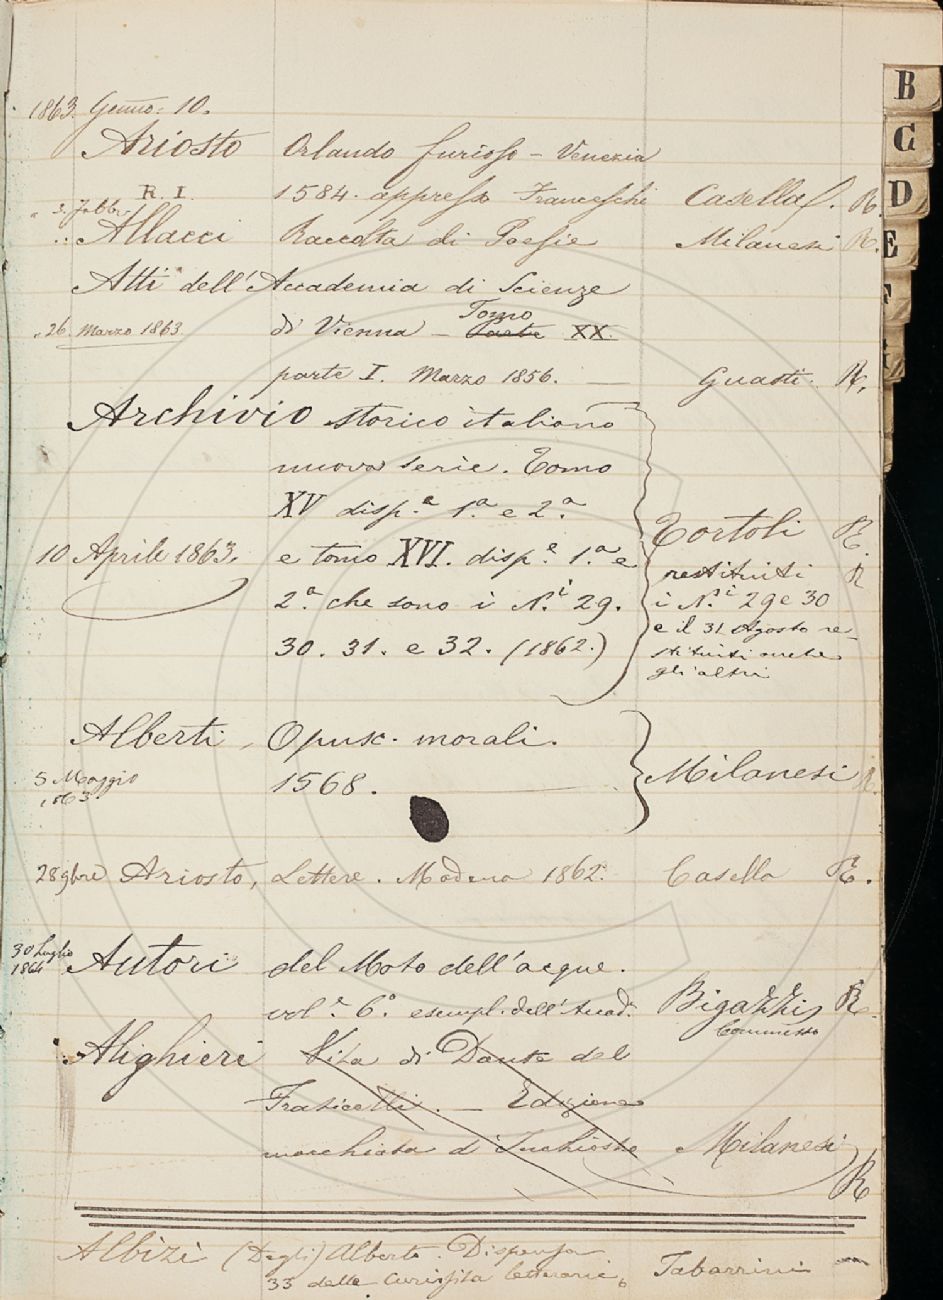 1863. Genno: 10.
Ariosto Orlando furioso - Venezia
R. I. 1584. appresso Franceschi Casella R.
" 3. Febbr.
Allacci Raccolta di Poesie Milanesi R.
Atti dell'Accademia di Scienze
26. Marzo 1863. di Vienna - Tomo Parte XX.
parte I. Marzo 1856. Guasti. R.
Archivio storico italiano
nuova serie. Tomo
XV disp.e 1.a e 2.a
Tortoli R.
10 Aprile 1863. e tomo XVI. disp.e 1.a e
restituiti R
2.a che sono i N.i 29.
i N.i 29 e 30
30. 31. e 32. (1862.)
e il 31 Agosto re-
stituiti anche
gli altri
Alberti, Opusc. morali.
5 Maggio 1863. 1568. Milanesi R.
28 9bre Ariosto, Lettere. Modena 1862. Casella R.
30 Luglio 1864 Autori del Moto dell'acque.
vol.e 6.o esempl. dell'Accad. Bigazzi R.
Commesso
Alighieri Vita di Dante del
Fraticelli. - Edizione
macchiata d'Inchiostro Milanesi R
Albizi (Degli) Alberto. Dispensa
33 delle Curiosita letterarie Tabarrini
B
C
D
E
F